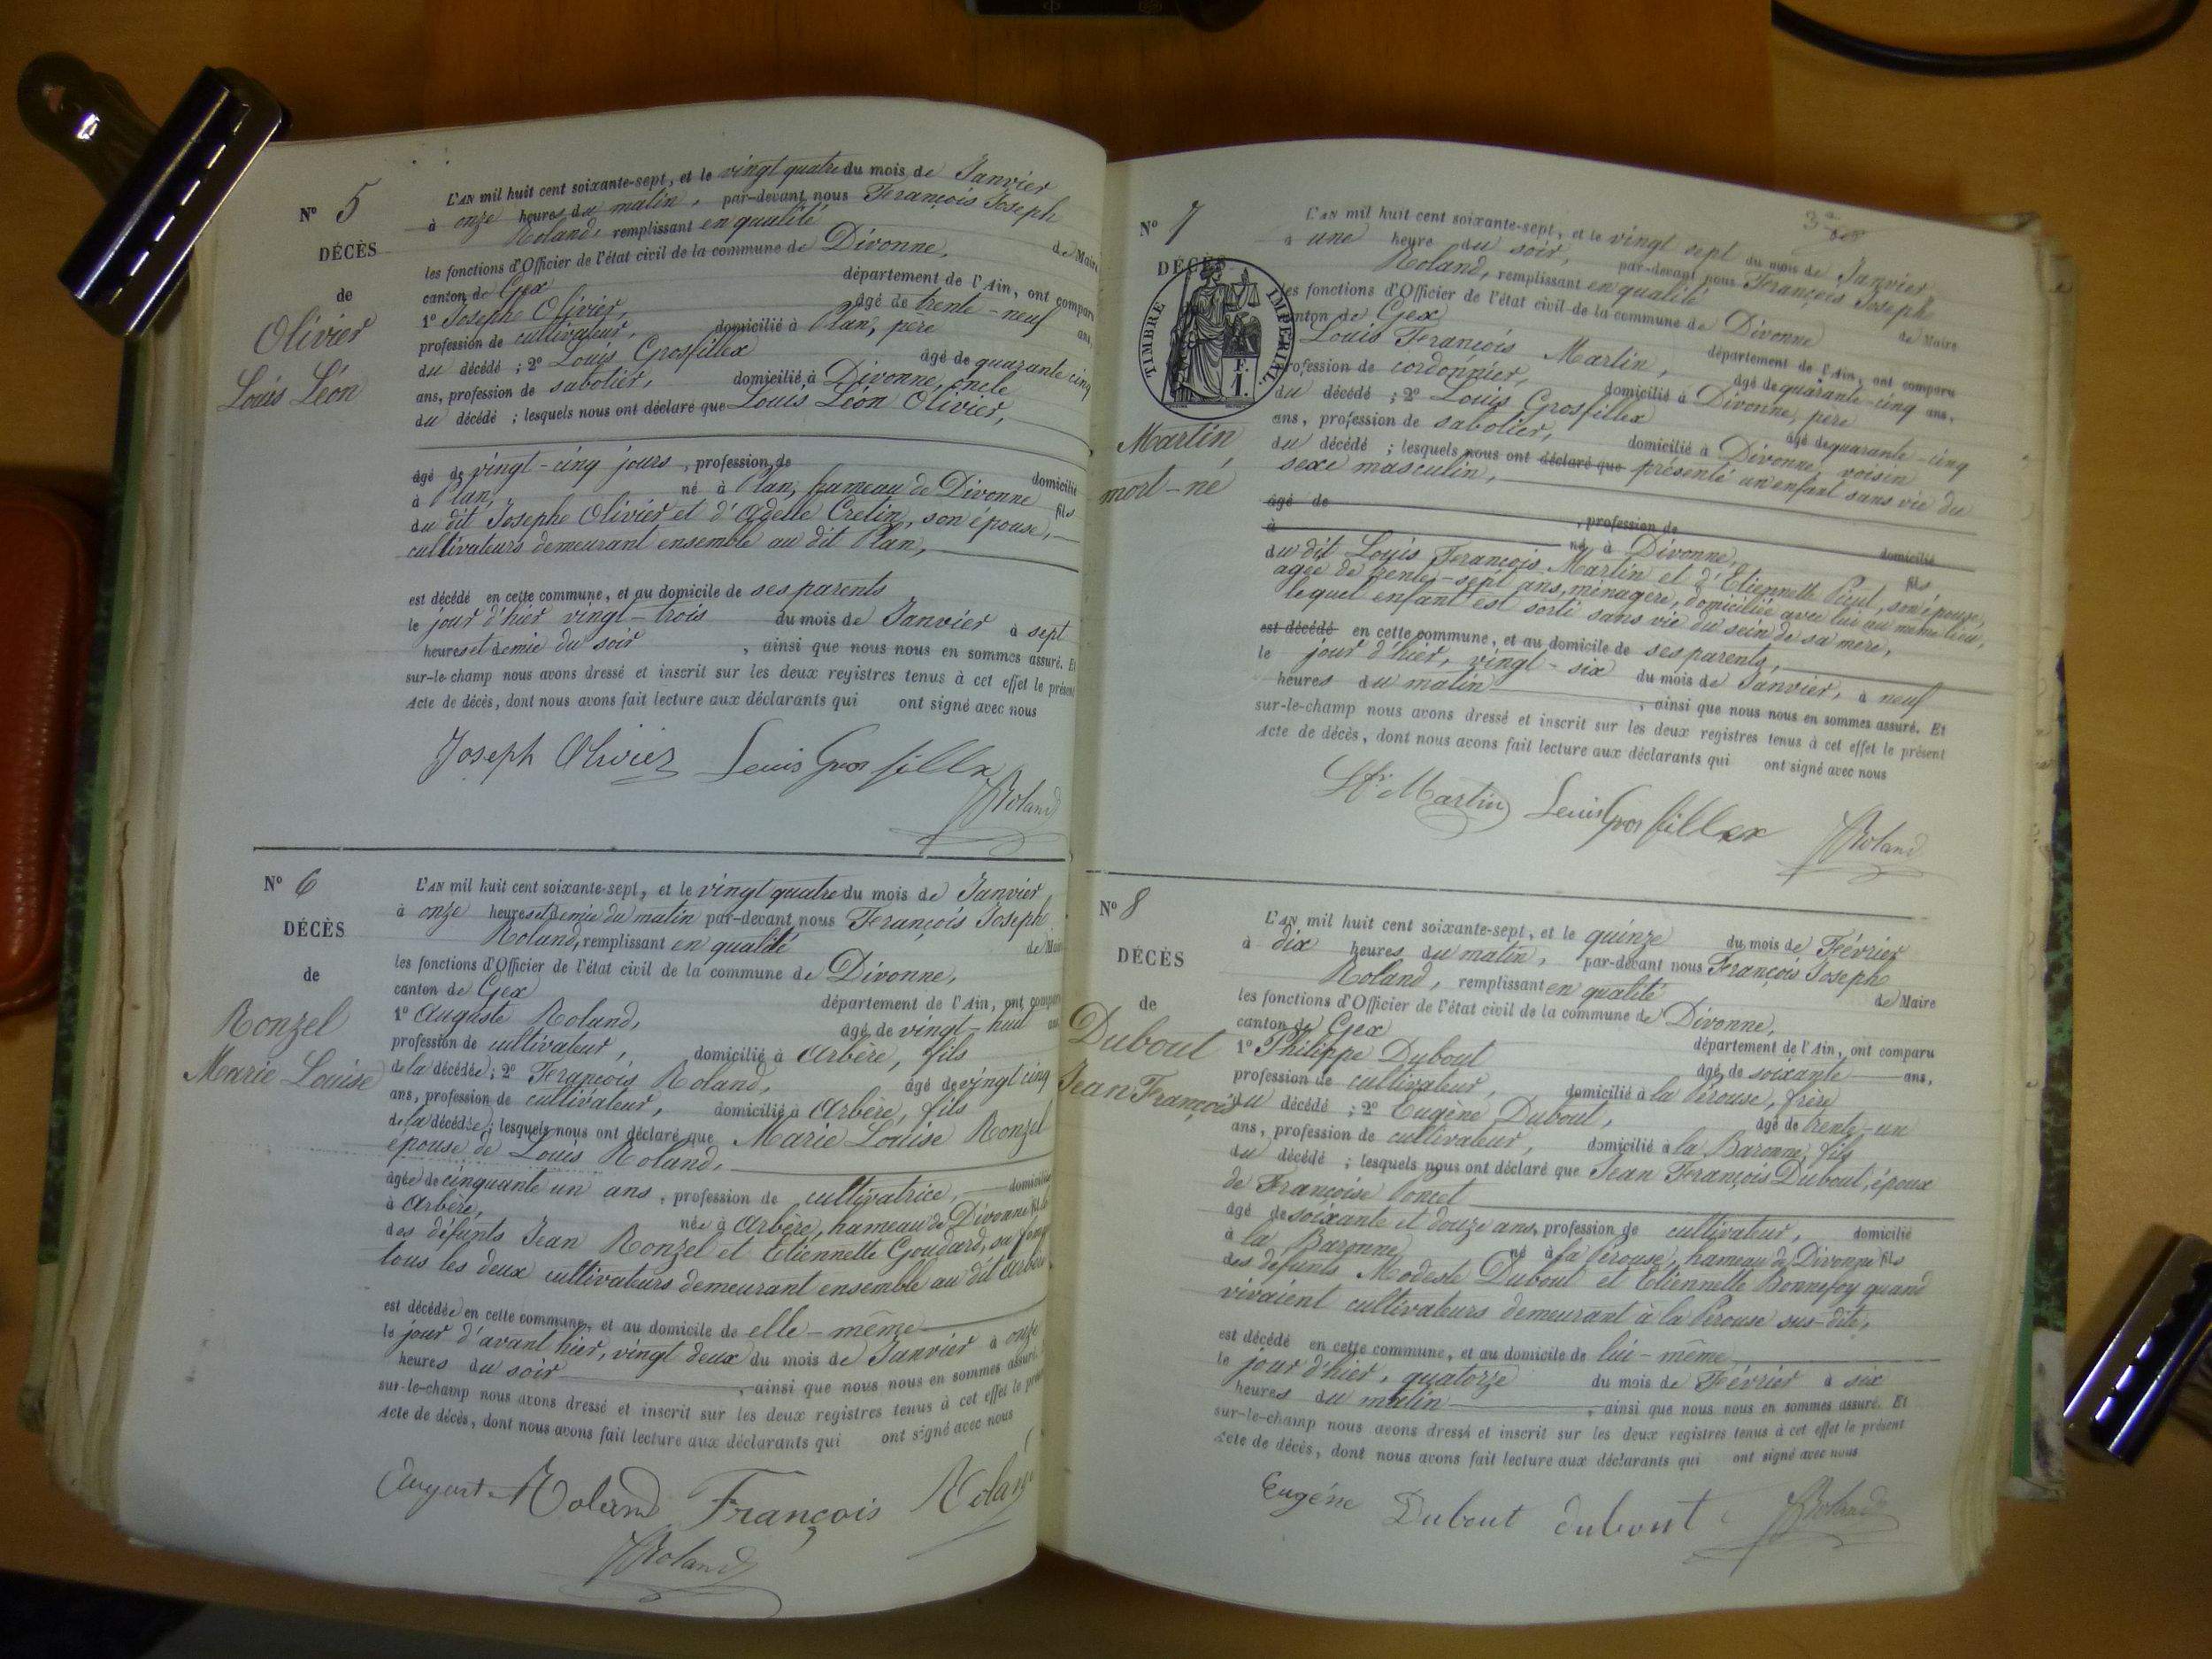 N° 5
DÉCÈS
de
Olivier
Louis Léon
L'AN mil huit cent soixante-sept, et le vingt quatre du mois de Janvier
à onze heures du matin, par-devant nous François Joseph
Roland, remplissant en qualité de Maire
les fonctions d'Officier de l'état civil de la commune de Divonne,
canton de Gex département de l'Ain, ont comparu
1° Joseph Olivier, âgé de trente-neuf ans,
profession de cultivateur, domicilié à Plan, père
du décédé ; 2° Louis Grosfillex âgé de quarante cinq
ans, profession de sabotier, domicilié à Divonne, oncle
du décédé ; lesquels nous ont déclaré que Louis Léon Olivier,
âgé de vingt-cinq jours, profession de domicilié
à Plan, né à Plan, hameau de Divonne fils
du dit Joseph Olivier et d'Adelle Cretin, son épouse,
cultivateurs demeurant ensemble au dit Plan,
est décédé en cette commune, et au domicile de ses parents
le jour d'hier vingt-trois du mois de Janvier à sept
heures et demie du soir, ainsi que nous nous en sommes assuré. Et
sur-le-champ nous avons dressé et inscrit sur les deux registres tenus à cet effet le présent
Acte de décès, dont nous avons fait lecture aux déclarants qui ont signé avec nous
Joseph Olivier Louis Grosfillex
JRoland
N° 6
DÉCÈS
de
Ronzel
Marie Louise
L'AN mil huit cent soixante-sept, et le vingt quatre du mois de Janvier
à onze heures et demie du matin par-devant nous François Joseph
Roland, remplissant en qualité de Maire
les fonctions d'Officier de l'état civil de la commune de Divonne,
canton de Gex département de l'Ain, ont comparu
1° Auguste Roland, âgé de vingt-huit ans
profession de cultivateur, domicilié à Arbère, fils
de la décédée ; 2° François Roland, âgé de vingt cinq
ans, profession de cultivateur, domicilié à Arbère, fils
de la décédée ; lesquels nous ont déclaré que Marie Louise Ronzel
épouse de Louis Roland,
âgée de cinquante un ans, profession de cultivatrice, domiciliée
à Arbère, née à Arbère, hameau de Divonne fille
des défunts Jean Ronzel et Etiennette Goudard, sa
tous les deux cultivateurs demeurant ensemble au dit Arbère
est décédée en cette commune, et au domicile de elle-même
le jour d'avant hier, vingt deux du mois de Janvier à onze
heures du soir, ainsi que nous nous en sommes assuré.
sur-le-champ nous avons dressé et inscrit sur les deux registres tenus à cet effet le présent
Acte de décès, dont nous avons fait lecture aux déclarants qui ont signé avec nous
August Roland François Roland
JRoland
N° 7
DÉCÈS
TIMBRE IMPÉRIAL.
F.
1.
Martin,
mort-né
L'AN mil huit cent soixante-sept, et le vingt sept du mois de Janvier
à une heure du soir, par-devant nous François Joseph
Roland, remplissant en qualité de Maire
les fonctions d'Officier de l'état civil de la commune de Divonne
canton de Gex département de l'Ain, ont comparu
Louis François Martin, âgé de quarante-cinq ans,
profession de cordonnier, domicilié à Divonne, père
du décédé ; 2° Louis Grosfillex âgé de quarante-cinq
ans, profession de sabotier, domicilié à Divonne, voisin
du décédé ; lesquels nous ont déclaré que présenté un enfant sans vie du
sexe masculin,
âgé de , profession de domicilié
à né à Divonne, fils
du dit Louis François Martin et d'Etiennette son épouse,
agée de trente-sept ans, ménagère, domiciliée avec lui au même lieu,
lequel enfant est sorti sans vie du sein de sa mère,
est décédé en cette commune, et au domicile de ses parents,
le jour d'hier, vingt-six du mois de Janvier, à neuf
heures du matin, ainsi que nous nous en sommes assuré. Et
sur-le-champ nous avons dressé et inscrit sur les deux registres tenus à cet effet le présent
Acte de décès, dont nous avons fait lecture aux déclarants qui ont signé avec nous
Martin Louis Grosfillex JRoland
N° 8
DÉCÈS
de
Dubout
Jean François
L'AN mil huit cent soixante-sept, et le quinze du mois de Février
à dix heures du matin, par-devant nous François Joseph
Roland, remplissant en qualité de Maire
les fonctions d'Officier de l'état civil de la commune de Divonne,
canton de Gex département de l'Ain, ont comparu
1° Philippe Dubout âgé de soixante ans,
profession de cultivateur, domicilié à la Pérouse, frère
du décédé ; 2° Eugène Dubout, âgé de trente-un
ans, profession de cultivateur, domicilié à la Baronne, fils
du décédé ; lesquels nous ont déclaré que Jean François Dubout, époux
de Françoise Poncet
âgé de soixante et douze ans, profession de cultivateur, domicilié
à la Baronne, né à la Pérouse, hameau de Divonne fils
des défunts Modeste Dubout et Etiennette Bonnefoy quand
vivaient cultivateurs demeurant à la Pérouse sus-dite,
est décédé en cette commune, et au domicile de lui-même
le jour d'hier, quatorze du mois de Février à six
heures du matin, ainsi que nous nous en sommes assuré. Et
sur-le-champ nous avons dressé et inscrit sur les deux registres tenus à cet effet le présent
Acte de décès, dont nous avons fait lecture aux déclarants qui ont signé avec nous
Eugéne Dubout dubout JRoland